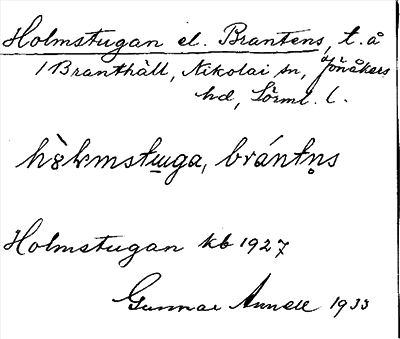 Holmstugan el. Brantens, t. å
1 Branthäll, Nikolai sn, Jönåkers
hd, Sörml. l.
Holmstugan kb 1927
Gunnar Annell 1933